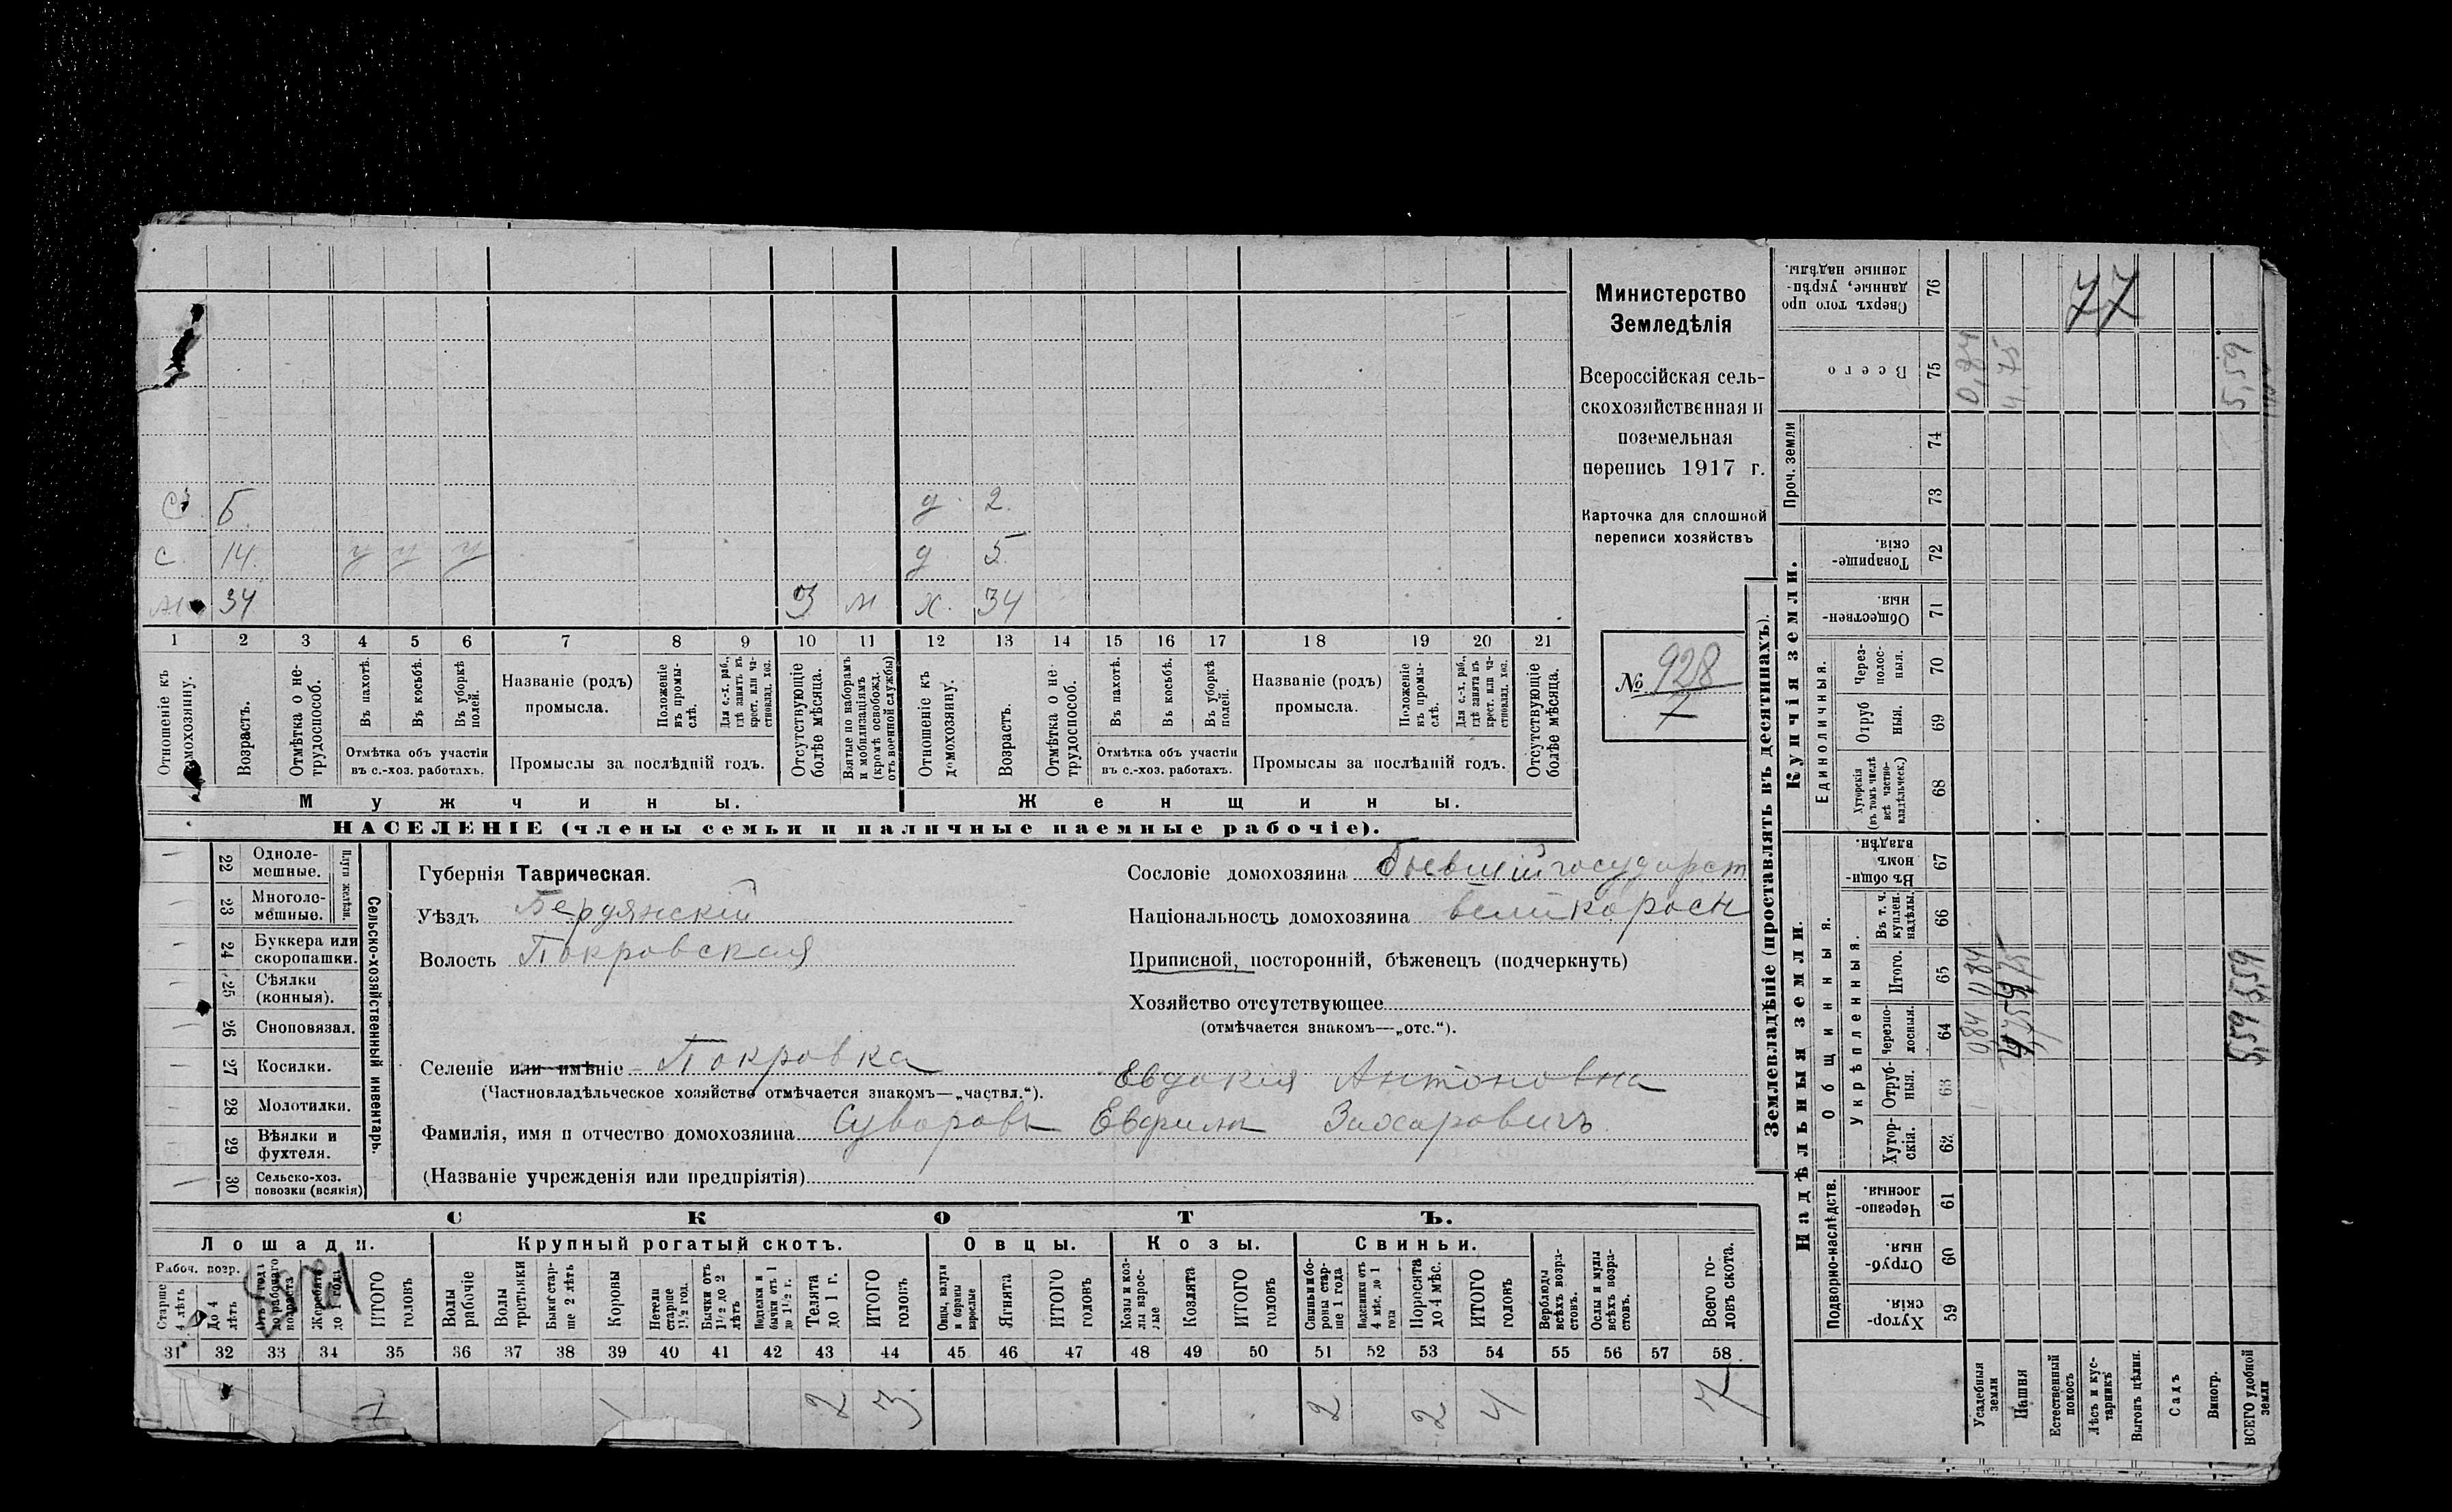 Министерство
Земледѣлія
Всероссійская сель-
скохозяйственная и
поземельная
перепись 1917 г.
Карточка для сплошной
переписи хозяйствъ
№ 928
7
С. 6. д. 2.
с. 14. у у у д 5
34 З м х. 34
1 2 3 4 5 6 7 8 9 10 11 12 13 14 15 16 17 18 19 20 21
Отношеніе къ домохозяину.
Возрастъ.
Отмѣтка о не-
трудоспособ.
Въ пахотѣ.
Въ косьбѣ.
Въ уборкѣ
полей.
Отмѣтка объ участіи
въ с.-хоз. работахъ.
Названіе (родъ)
промысла.
Положеніе
въ промы-
слѣ.
Для с.-х. раб.,
гдѣ занятъ въ
крест. или ча-
стновлад. хоз.
Промыслы за послѣдній годъ.
Отсутствующіе
болѣе мѣсяца.
Взятые по наборамъ
и мобилизаціямъ
(кромѣ освобожд.
отъ военной службы)
Отношеніе къ
домохозяину.
Возрастъ.
Отмѣтка о не
трудоспособ.
Въ пахотѣ.
Въ косьбѣ.
Въ уборкѣ
полей.
Отмѣтка объ участіи
въ с.-хоз. работахъ.
Названіе (родъ)
промысла.
Положеніе
въ промы-
слѣ.
Для с.-х. раб.,
гдѣ занята въ
крест. или ча-
стновлад. хоз.
Промыслы за послѣдній годъ.
Отсутствующіе
болѣе мѣсяца.
Мужчины. Женщины.
НАСЕЛЕНІЕ (члены семьи и наличные наемные рабочіе).
Сельско-хозяйственный инвентарь.
Плуги желѣзн.
22 Одноле-
мешные.
23 Многоле-
мешные.
24 Буккера или
скоропашки.
25 Сѣялки
(конныя).
26 Сноповязал.
27 Косилки.
28 Молотилки.
29 Вѣялки и
фухтеля.
30 Сельско-хоз.
повозки (всякія)
Губернія Таврическая.
Уѣздъ Бердянскій
Волость Покровская
Селеніе или имѣніе Покровка
(Частновладѣльческое хозяйство отмѣчается знакомъ—„частвл.“).
Евдокія Антоновна
Фамилія, имя и отчество домохозяина Суворовъ Ефимъ Захаровичъ
(Названіе учрежденія или предпріятія)
Сословіе домохозяина бывшій государст
Національность домохозяина великороссъ
Приписной, посторонній, бѣженецъ (подчеркнуть)
Хозяйство отсутствующее
(отмѣчается знакомъ—„отс.“).
СКОТЪ.
Лошади. Крупный рогатый скотъ. Овцы. Козы. Свиньи.
Рабоч. возр.
Старше
4 лѣтъ
До 4
лѣтъ
Отъ 1 года
до рабочаго
возраста
Жеребята
до 1 года
ИТОГО
головъ
Волы
рабочіе
Волы
третьяки
Быки стар-
ше 2 лѣтъ
Коровы
Нетели
старше
1½ год.
Бычки отъ
1½ до 2
лѣтъ
Подтелки и
бычки отъ 1
до 1½ г.
Телята
до 1 г.
ИТОГО
головъ
Овцы, валухи
и бараны
взрослые
Ягнята
ИТОГО
головъ
Козы и коз-
лы взрос-
лые
Козлята
ИТОГО
головъ
Свиньи и бо-
ровы стар-
ше 1 года
Подсвинки отъ
4 мѣс. до 1
года
Поросята
до 4 мѣс.
ИТОГО
головъ
Верблюды
всѣхъ возра-
стовъ.
Ослы и мулы
всѣхъ возра-
стовъ.
Всего го-
ловъ скота.
31 32 33 34 35 36 37 38 39 40 41 42 43 44 45 46 47 48 49 50 51 52 53 54 55 56 57 58
2 3. 2 2 4 7
Землевладѣніе (проставлять въ десятинахъ).
Надѣльныя земли. Купчія земли.
Подворно-наслѣдств.
Общинныя.
Укрѣпленныя.
Единоличныя.
Проч. земли
Хутор-
скія. 59
Отруб-
ныя. 60
Черезпо-
лосныя. 61
Хутор-
скія. 62
Отруб-
ныя. 63
Черезпо-
лосныя. 64
Итого. 65
Въ т. ч.
куплен.
надѣлы. 66
Въ общи-
номъ
владѣн. 67
Хуторскія
(въ томъ числѣ
всѣ частно-
владѣльческ.) 68
Отруб
ныя. 69
Через-
полос-
ныя. 70
Обществен-
ныя. 71
Товарище-
скія. 72
73
74
Всего 75
Сверхъ того про
данные, укрѣп-
ленные надѣлы. 76
Усадебныя
земли 0,84 0,84 0,84
Пашня 4,75 4,75 4,75
Естественный
покосъ
Лѣсъ и кус-
тарникъ
Выгонъ цѣлин.
Садъ
Виногр.
ВСЕГО удобной
земли 5,59 5,59 5,59
77